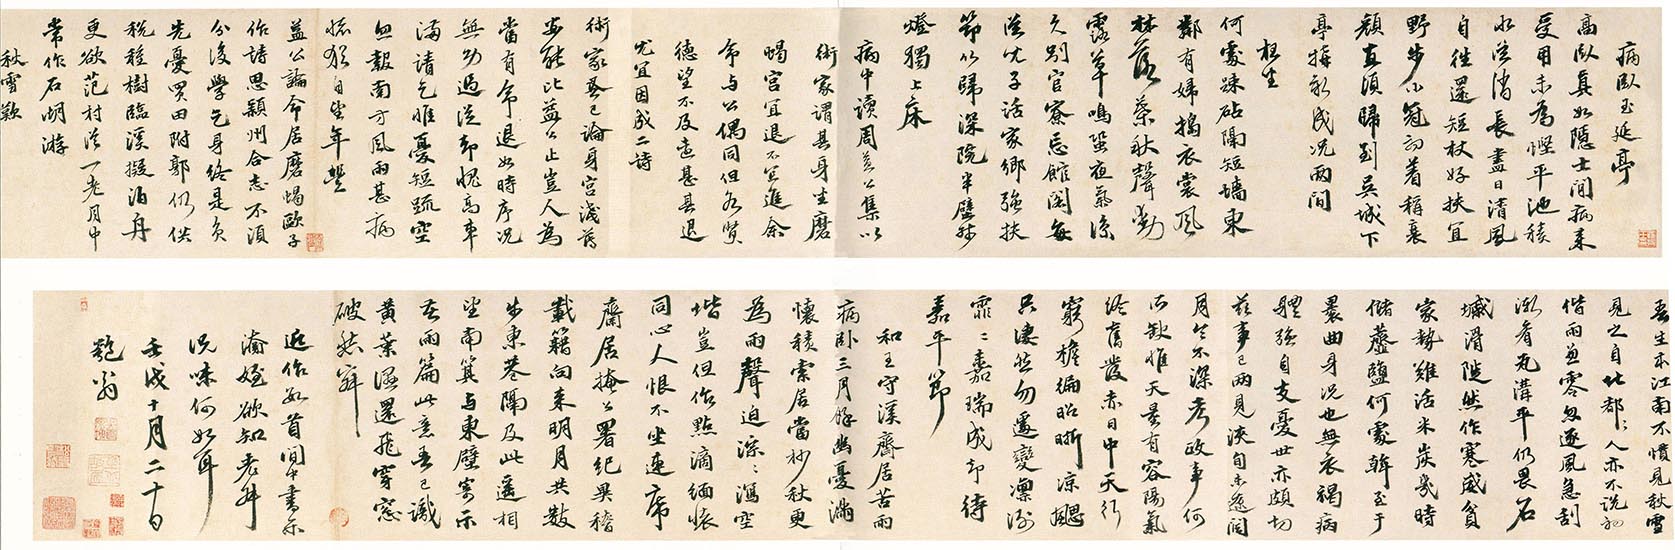 病臥玉延亭
高臥真如隱士閒病来
受用未为慳平池積
水從消長盡日清風
自往還短杖好扶宜
野步小冠初著稱衰
顏直須歸到吳城下
亭新成況兩間
枕上
何處疎砧隔短墻東
鄰有婦搗衣裳風
林落葉秋聲動
露草鳴蛩夜氣涼
久別官寮忘館閣每
從兒子話家鄉強扶
節以歸深院半壁殘
燈獨上床
病中讀周益公集以
術家謂其身坐磨
蝎宮宜退不宜進余
命与公偶同但名賢
德望不及遠甚其退
尤宜因成二詩
術家吾已論身宮淺薄
安能比益公止豈人為
當有命退如時序況
無功過從却愧高車
滿請乞惟憂短疏空
忽報南方風雨甚病
懷猶自望年豐
益公論命居磨蝎歐子
作詩思潁州合志不須
分後學乞身終是負
先憂買田附郭仍供
稅種樹臨溪擬泊舟
更欲范村從一老月中
常作石湖游
秋雪歎
吾生本江南不慣見秋雪
見之自北都々人亦不說初
偕雨兼零忽逐風急刮
漸看瓦溝平仍畏石
墄滑陡然作寒威貧
家執難活米炭幾時
儲虀鹽何處斡至于
曲身況也無衣褐病
軆強自支憂世亦頗切
茲事已兩見浹旬未遼闊
月令不深考政事何
所缺惟天最有容陽氣
終奮發赤日中天行
窮檐徧昭晣涼颸
只淒然勿遽變凜冽
霏々嘉瑞成即待
嘉平節
和王守溪齋居苦雨
病臥三月餘幽憂滿
懷積索居當杪秋更
為雨聲迫淙々瀉空
堦豈但作點滴緬懷
同心人恨不坐連席
齋居掩公署紀異稽
載籍向来明月共數
步東巷隔及此遥相
望南箕与東壁寄示
苦雨篇此意吾已識
黃葉濕還飛穿窓
破愁寂
近作數首閒中書示
姪欲知老叔
況味何如耳
壬戌十月二十日
匏翁